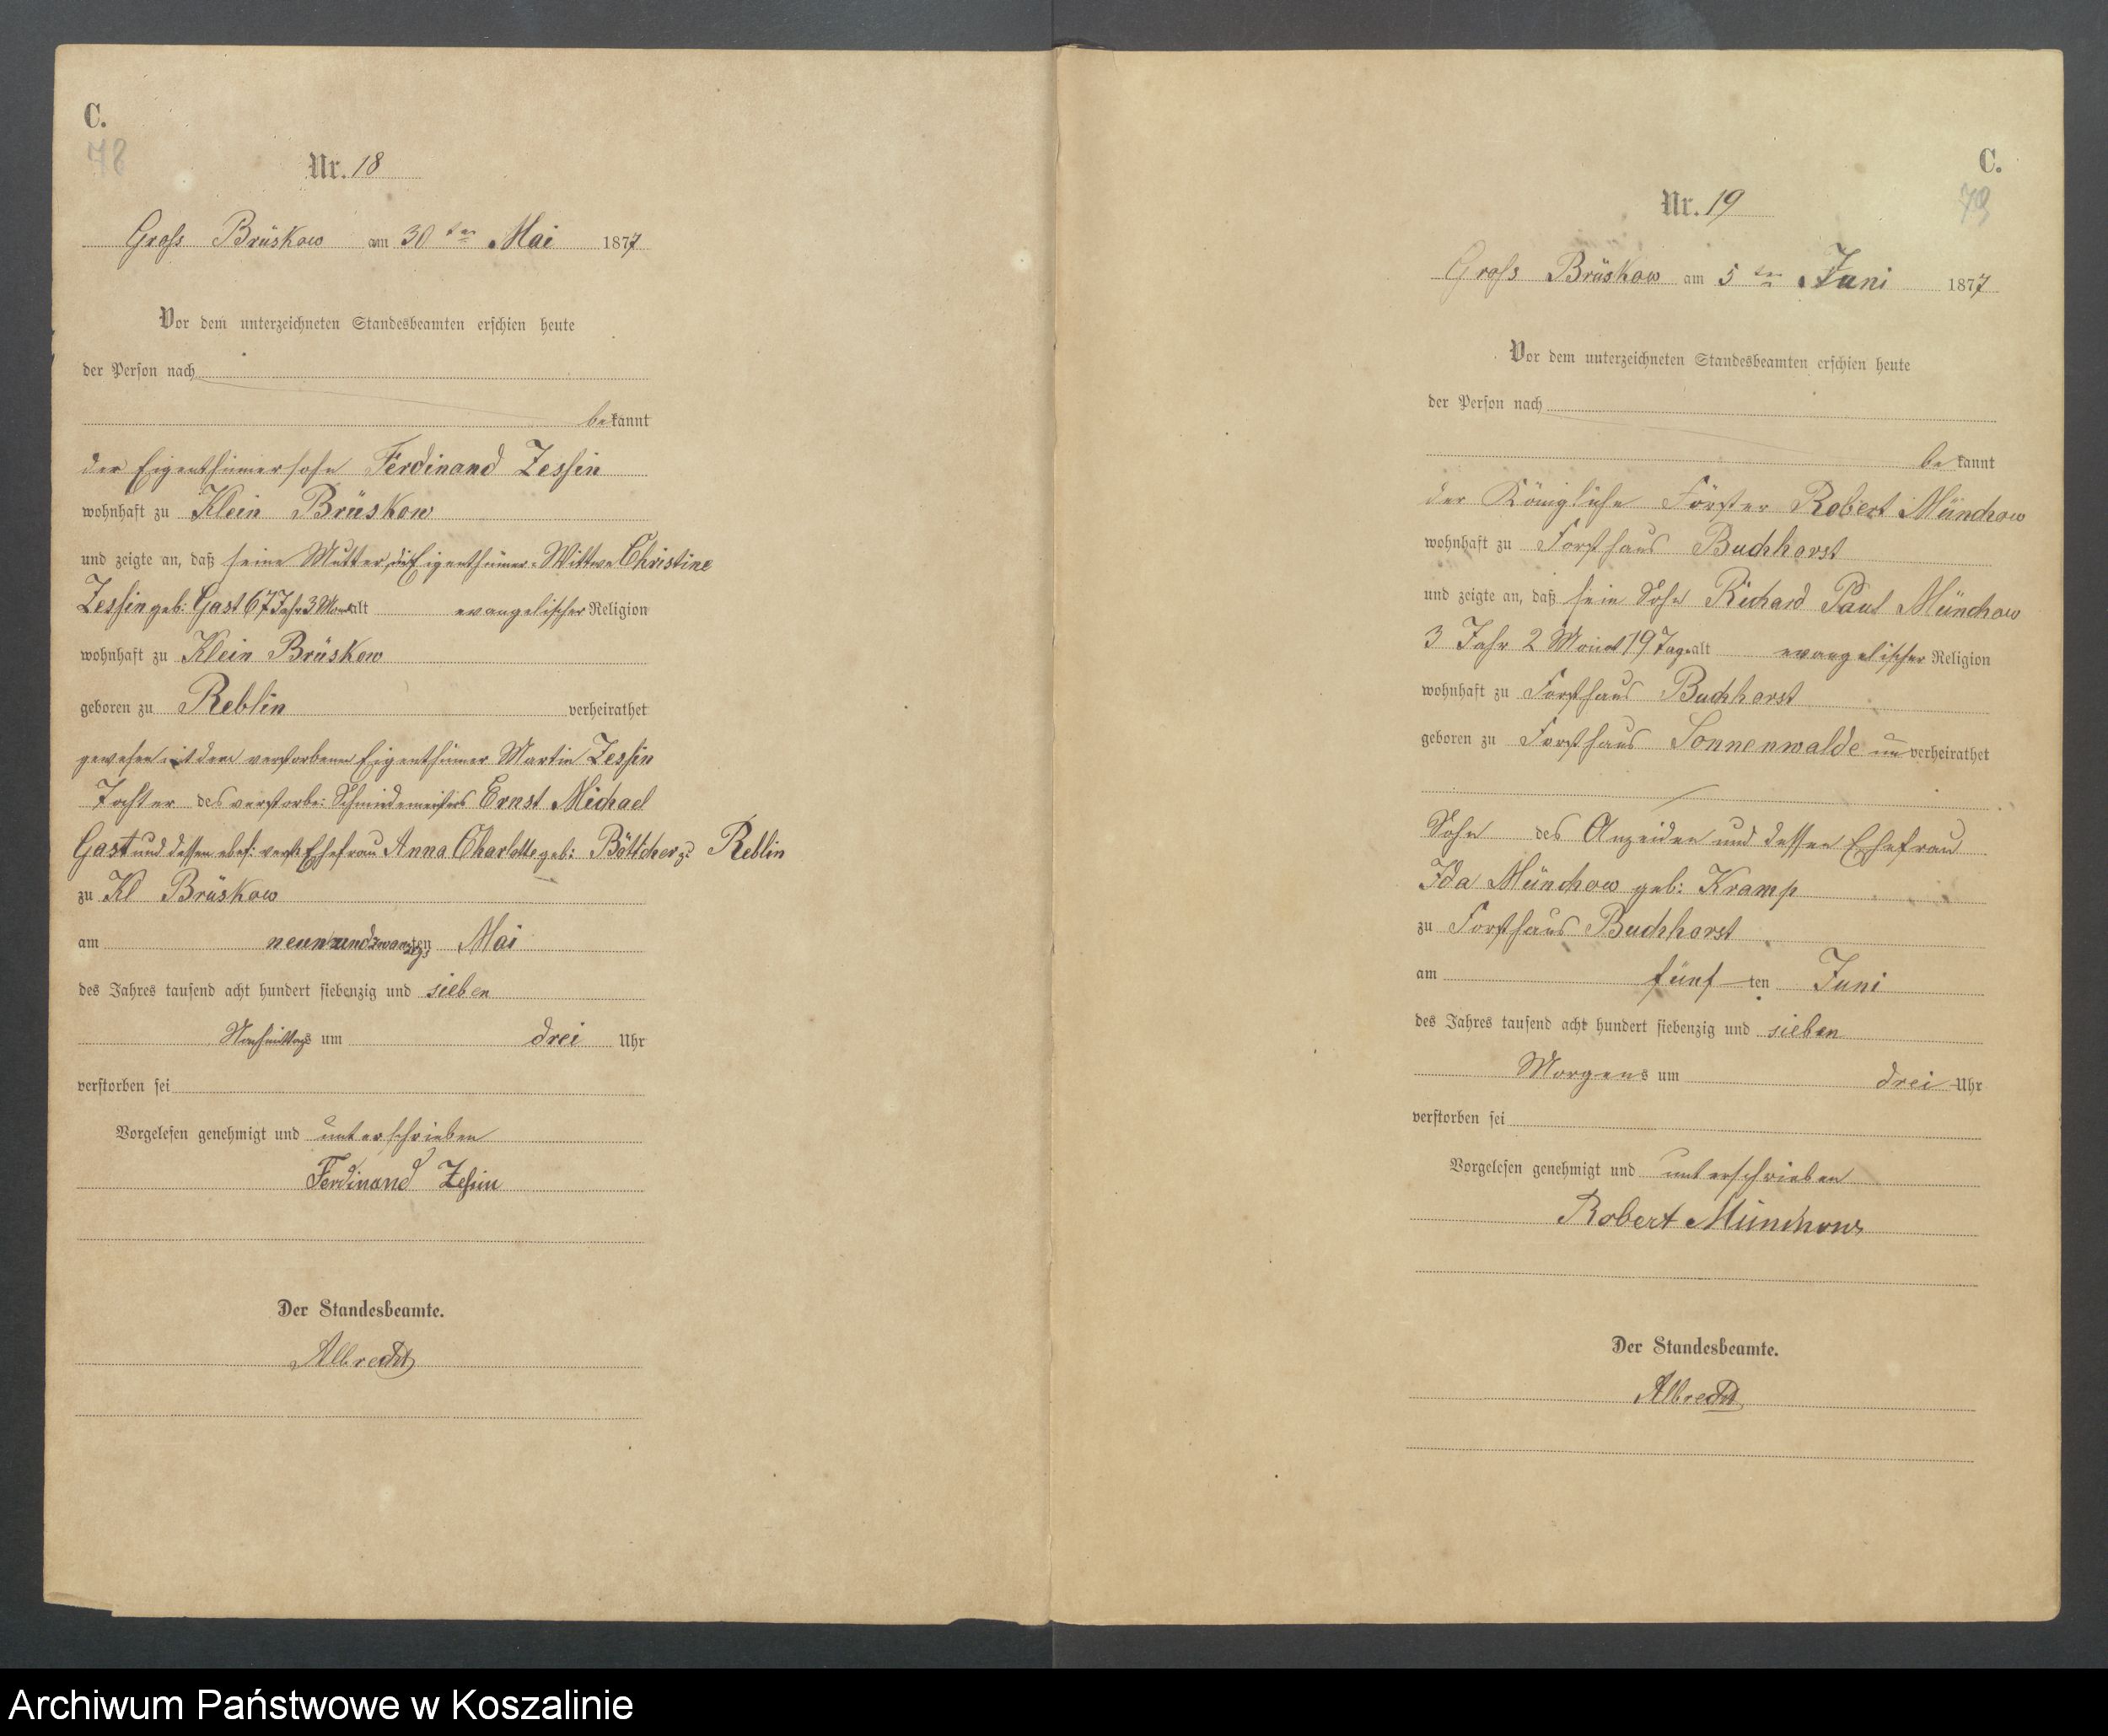 C.
78
Nr. 18
Groß Brüskow am 30ten Mai 1877
Vor dem unterzeichneten Standesbeamten erschien heute
der Person nach
bekannt
der Eigenthümersohn Ferdinand Zessin
wohnhaft zu Klein Brüskow
und zeigte an, daß seine Mutter, die Eigenthümer-Wittwe Christine
Zessin geb: Gast 67 Jahr 3 Monat alt evangelischer Religion
wohnhaft zu Klein Brüskow
geboren zu Reblin verheirathet
gewesen mit dem verstorbenen Eigenthümer Martin Zessin
Tochter des verstorb: Schmiedemeisters Ernst Michael
Gast und dessen ebef: verst: Ehefrau Anna Charlotte geb: Böttcher zu Reblin
zu Kl Brüskow
am neunundzwanzigsten Mai
des Jahres tausend acht hundert siebenzig und sieben
Nachmittags um drei Uhr
verstorben sei
Vorgelesen genehmigt und unterschrieben
Ferdinand Zessin
Der Standesbeamte.
Albrecht
C.
79
Nr. 19
Groß Brüskow am 5ten Juni 1877
Vor dem unterzeichneten Standesbeamten erschien heute
der Person nach
bekannt
der Königliche Förster Robert Münchow
wohnhaft zu Forsthaus Buchhorst
und zeigte an, daß sein Sohn Richard Paul Münchow
3 Jahr 2 Monat 19 Tage alt evangelischer Religion
wohnhaft zu Forsthaus Buchhorst
geboren zu Forsthaus Sonnenwalde unverheirathet
Sohn des Anzeiden und dessen Ehefrau
Ida Münchow geb: Kramp
zu Forsthaus Buchhorst
am fünften Juni
des Jahres tausend acht hundert siebenzig und sieben
Morgens um drei Uhr
verstorben sei
Vorgelesen genehmigt und unterschrieben
Robert Münchow
Der Standesbeamte.
Albrecht
Archiwum Państwowe w Koszalinie